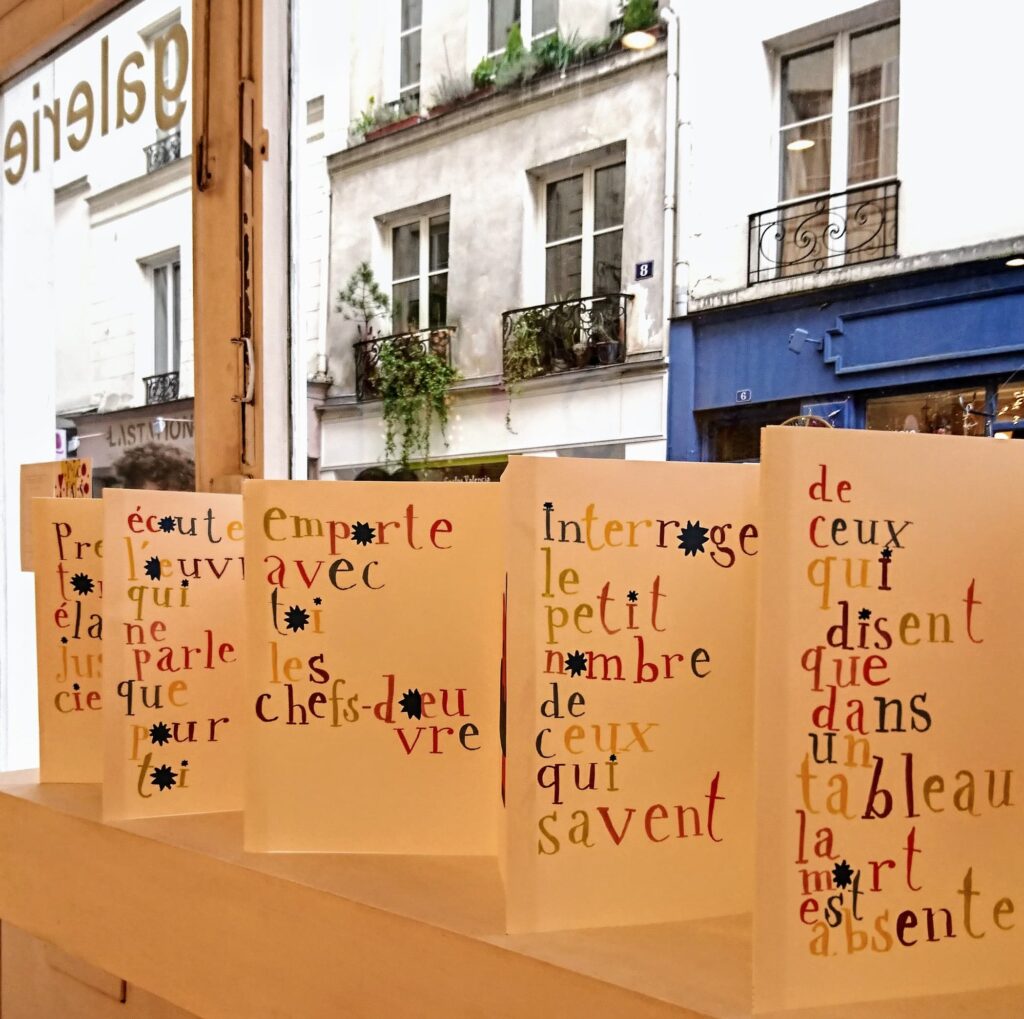 galerie
LASTATION
8
6
Pre
ton
éla
jus
cie
écoute
l'œuvr
qui
ne
parle
que
pour
toi
emporte
avec
toi
les
chefs-d'œu
vre
Interroge
le
petit
nombre
de
ceux
qui
savent
de
ceux
qui
disent
que
dans
un
tableau
la
mort
est
absente